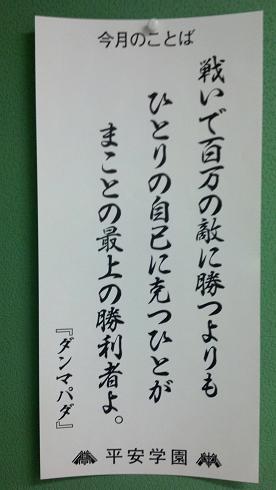 今月のことば
戦いで百万の敵に勝つよりも
ひとりの自己に克つひとが
まことの最上の勝利者よ。
『ダンマパダ』
平安学園